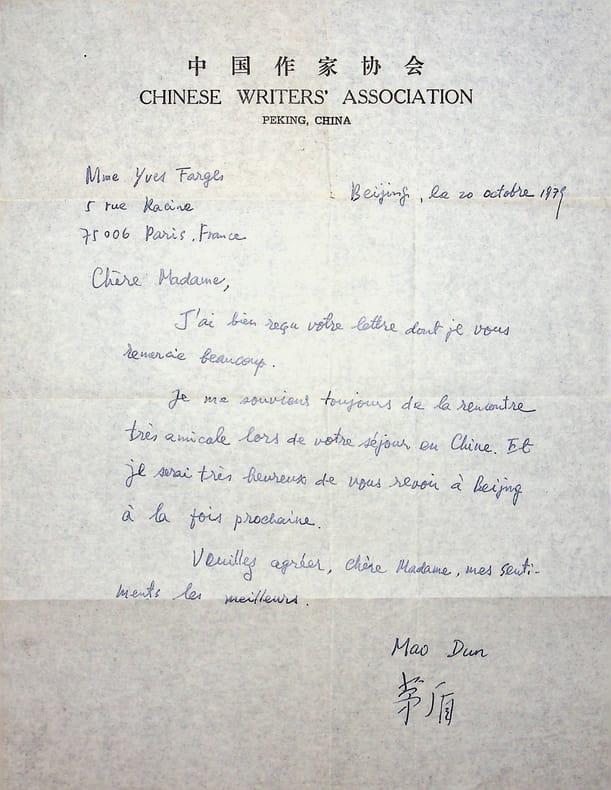 中国作家协会
CHINESE WRITERS' ASSOCIATION
PEKING, CHINA
Mme Yves Farges
5 rue Racine
75006 Paris, France
Beijing, le 20 octobre 1979
Chère Madame,
J'ai bien reçu votre lettre dont je vous
remercie beaucoup.
Je me souviens toujours de la rencontre
très amicale lors de votre séjour en Chine. Et
je serai très heureux de vous revoir à Beijng
à la fois prochaine.
Veuillez agréer, chère Madame, mes senti-
ments les meilleurs.
Mao Dun
茅盾